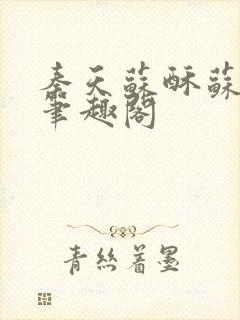 秦天蘇酥蘇
筆趣閣
青絲著墨